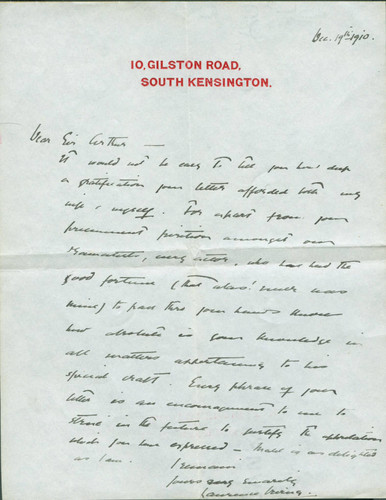 Dec. 19th 1910.
10, GILSTON ROAD,
SOUTH KENSINGTON.
Dear Sir Arthur —
It would not be easy to tell you how deep
a gratification your letter afforded both my
wife & myself. For apart from your
preeminent position amongst our
dramatists, every actor, who has had the
good fortune (that alas! never was
mine) to pass thro your hands knows
how absolute is your knowledge in
all matters appertaining to his
special craft. Every phrase of your
letter is an encouragement to me to
strive in the future to justify the
which you have expressed — is as delighted
as I am. I remain
yours very sincerely
Laurence Irving.